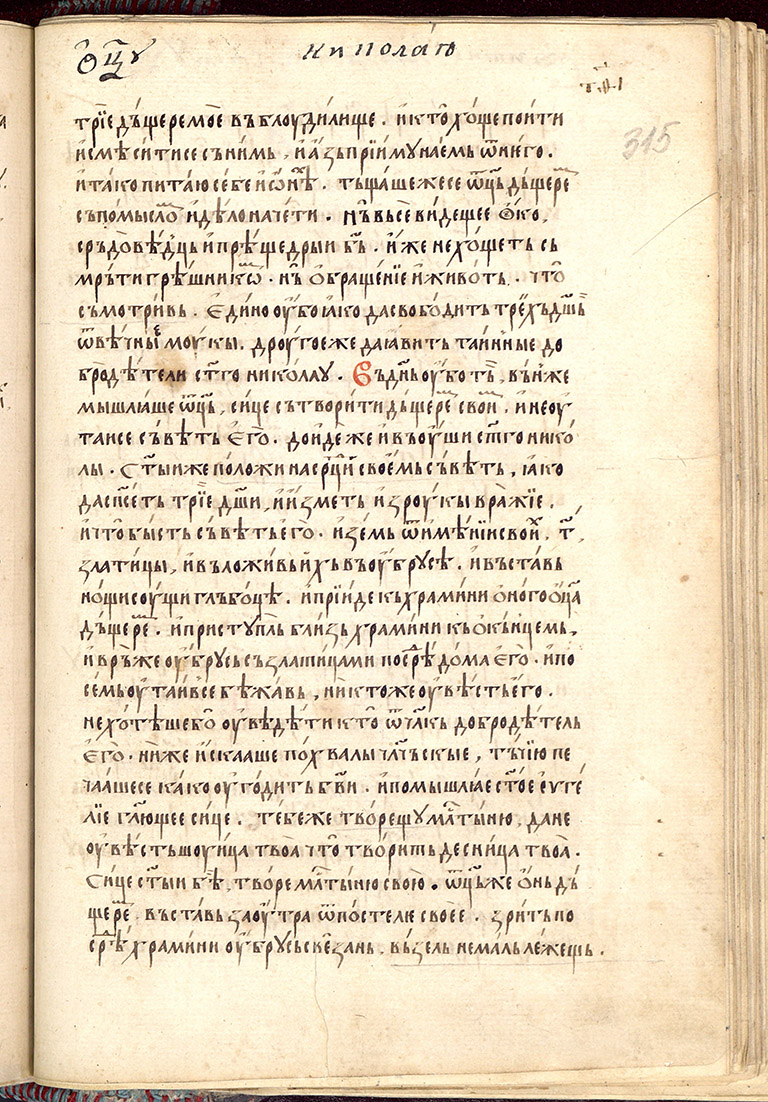 ѻц҃у николаѥ
т҃ді
315
трїе дъщере мое въ блоудилище. и кто хоще поити
и смѣситисе съ нимь, и азь прїиму наемь ѿ него.
и тако питаю себе и ѡнѣ. тъщашежесе ѿц҃ь дъщере
съ помысло и дѣло начети. нъ въсе видещее ѻко,
срдовѣдць и прѣщедрыи бъ҃. иже не хощеть съ
мрьти грѣшникѡ. нъ ѻбращенїе и животь. что
съмотривь. Єдино оубо ꙗко да свободить трех дш҃ь
ѿ вѣчныѥ моукы. дроугое же да ꙗвить таинные до
бродѣтели ст҃го николау. Въ дн҃ь оубо ть, вън же
мышлꙗше ѿц҃ь, сице сътворити дъщере свои. и не оу
таисе съвѣть ѥго. доиде же и въ оуши ст҃го нико
лы. Ст҃ыи же положи на срдци своемь съвѣть, ꙗко
да спсеть трїе дш҃и, и измет ь из роукы вражїе.
и что бысть съвѣть его. иземь ѿ имѣнїи свои, т҃,
златицы, и вложивь ихь въ оубрусѣ. и въставь
нощи соущи глъбоцѣ. и прїиде къ храмини оного ѿца
дъщере. и приступль близь храмини къ ѻкънцемь,
и врьже оубрусь съ златицами посредѣ дома ѥго. и по
семь оутаивсе бѣжавь, никтоже оувѣсть его.
не хотѣше бо оувѣдѣти кто ѿ чл҃кь добродѣтель
ѥго. ниже искааше похвалы чл҃чьскые, тъчїю пе
чаашесе како оугодить бг҃ви. и помышлꙗе ст҃ое еѵгє
лїе гл҃ющее сице. тебе же творещу мл҃тыню, да не
оувѣсть шоуица твоꙗ что творить десница твоꙗ.
Сице ст҃ыи бѣ, творе мл҃тыню свою. ѿц҃ь же онь дъ
щере, въставь заоутра ѿ постелю своее. зрить по
срѣ храмини оубрусь свезань. възель немаль лежещь.